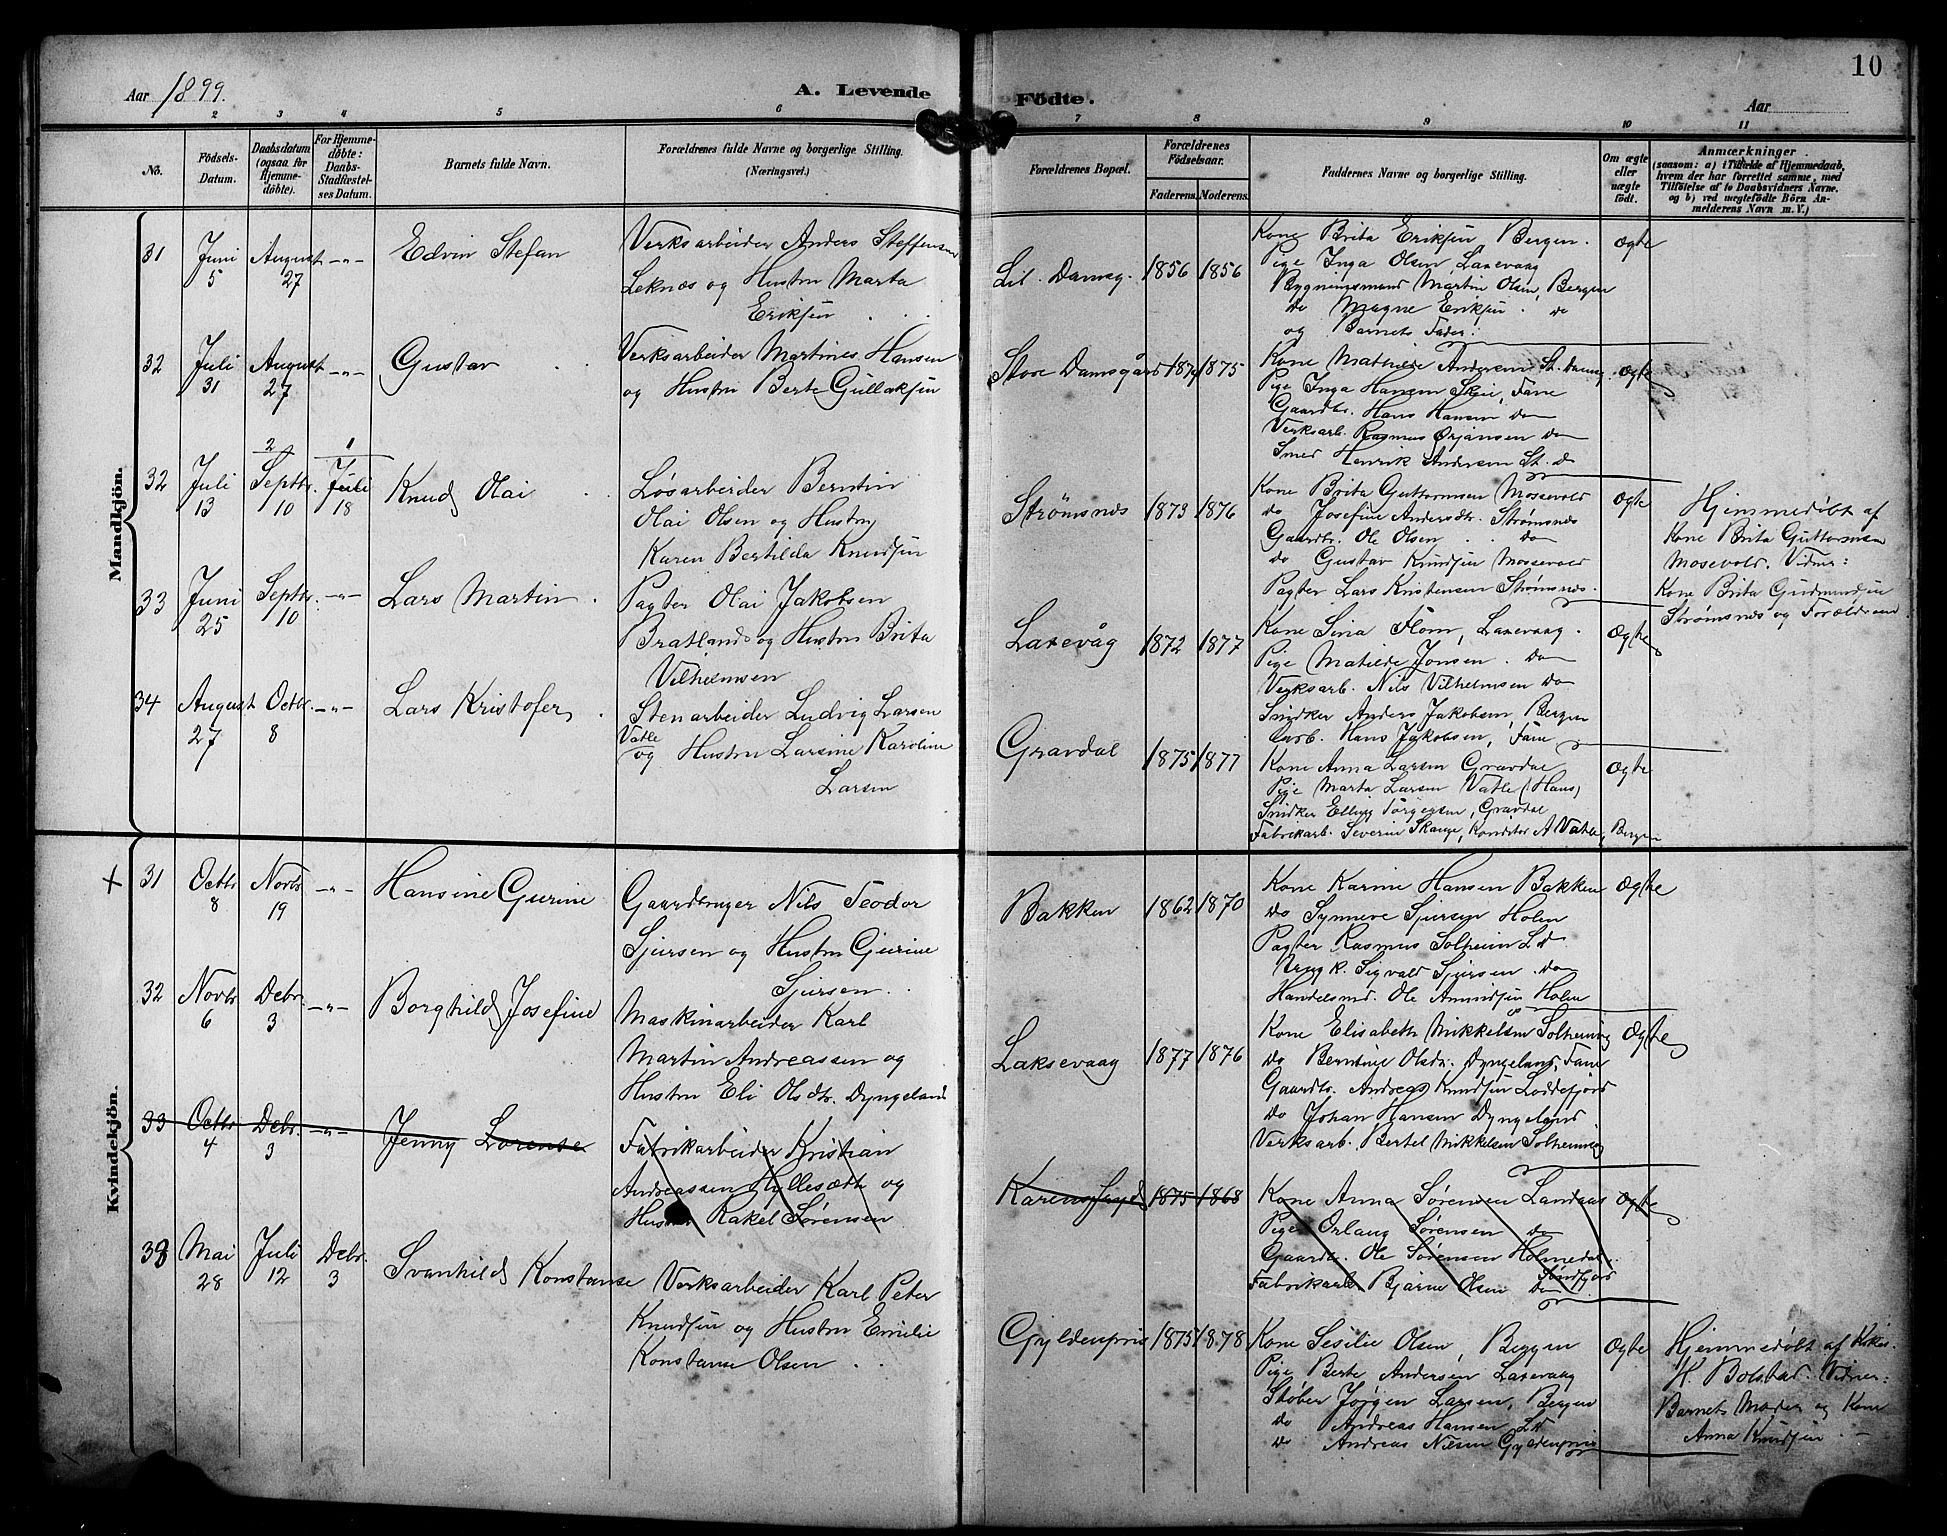 Aar 1899.
A. Levende
Födte.
Aar
10
1 2 3 4 5 6 7 8 9 10 11
No.
Födsels-Datum.
Daabsdatum (ogsaa for Hjemme-döbte).
For Hjemme-döbte: Daabs-Stadfæstel-ses Datum.
Barnets fulde Navn.
Forældrenes fulde Navne og borgerlige Stilling.
(Næringsvei.)
Forældrenes Bopæl.
Forældrenes Födselsaar.
Faderens. Moderens.
Faddernes Navne og borgerlige Stilling.
Om ægte eller uægte födt.
Anmærkninger
(saasom: a) i Tilfælde af Hjemmedaab,
hvem der har forrettet samme, med
Tilföielse af to Daabsvidners Navne,
og b) ved uægtefödte Börn An-
melderens Navn m. V.)
Mandkjön.
31 Juni 5 August 27 -"- Edvin Stefan
Verksarbeider Anders Steffensen
Leknes og Hustru Marta
Eriksen
Lil. Damsg. 1856 1856
Kone Brita Eriksen, Bergen.
Pige Inga Olsen, Laxevaag
Bygningsmand Martin Olsen, Bergen
do Magne Eriksen do
og Barnets Fader.
Ægte
32 Juli 31 August 27 -"- Gustav
Verksarbeider Martines Hansen
og Hustru Berte Gullaksen
Store Damsgård 1874 1875
Kone Mathilde Andersen St. Damsg.
Pige Inga Hansen Skei, Fane
Gaardbr. Hans Hansen do
Verksarb. Rasmus Ørjansen do
Smed Henrik Andersen St. d
Ægte
32 Juli 13 2/ Septbr. 10 1/ Juli 18 Knud Olai
Løsarbeider Berntin
Olai Olsen og Hustru
Karen Bertilda Knudsen
Strømsnes 1873 1876
Kone Brita Guttormsen Mosevold
do Josefine Andersdtr. Strømsnes
Gaardbr. Ole Olsen do
do Gustav Knudsen Mosevold
Pagter Lars Kristensen Strømsnes.
Ægte
Hjemmedøbt af
Kone Brita Guttormsen
Mosevold. Vidner:
Kone Brita Gudmundsen
Strømsnes og Forældrene
33 Juni 25 Septbr. 10 -"- Lars Martin
Pagter Olai Jakobsen
Bratland og Hustru Brita
Vilhelmsen
Laxevåg 1872 1877
Kone Sina Flom, Laxevaag.
Pige Matilde Jonsen do
Verksarb. Nils Vilhelmsen do
Snidker Anders Jakobsen, Bergen
Hans Jakobsen, Fane
Ægte
34 August 27 Octbr. 8 -"- Lars Kristofer
Stenarbeider Ludvig Larsen
Vatle
og Hustru Larsine Karoline
Larsen
Gravdal 1875 1877
Kone Anna Larsen Gravdal
Pige Marta Larsen Vatle (Haus)
Snidker Elling Torgersen, Gravdal
Fabrikarb. Severin Skauge, Konditor A Vatle, Bergen
Ægte
Kvindekjön.
+ 31 Octbr 8 Novbr 19 -"- Hansine Gurine
Gaardbruger Nils Teodor
Sjursen og Hustru Gjurine
Sjursen
Bakken 1862 1870
Kone Karine Hansen Bakken
do Synneve Sjursen Holen
Pagter Rasmus Solheim Ld
Ungk. Sigvald Sjursen do
Handelsmd. Ole Amundsen Holen
Ægte
32 Novbr 6 Debr. 3 -"- Borghild Josefine
Maskinarbeider Karl
Martin Andreassen og
Hustru Eli Olsdtr. Dyngeland
Laksevaag 1877 1876
Kone Elisabeth Mikkelsen Solheimsvig
do Berntine Olsdtr. Dyngeland, Fane
Gaardbr. Andreas Knudsen Loddefjord
do Johan Hansen Dyngeland
Verksarb. Bertel Mikkelsen Solheimsvig
Ægte
33 Octbr 4 Debr. 3 -"- Jenny Lorense
Fabrikarbeider Kristian
Andreassen Hyllesætt og
Hustru Rakel Sørensen
Karensfryd 1875 1868
Kone Anna Sørensen Landaas
Pige Orlaug Sørensen do
Gaardbr. Ole Sørensen Holmedal
Søndfjord
Fabrikarb Bjarne Olsen do
Ægte
33 Mai 28 Juli 12 Debr. 3 Svanhild Konstanse
Verksarbeider Karl Peter
Knudsen og Hustru Emilie
Konstanse Olsen
Gyldenpris 1875 1878
Kone Sesilie Olsen, Bergen
Pige Berte Andersen Laxevaag
Støber Jørgen Larsen, Bergen
do Andreas Hansen Ld
do Andreas Nilsen Gyldenpris
Ægte
Hjemmedøbt af
H. Bolstad. Vidner:
Barnets Moder og Kone
Anna Knudsen